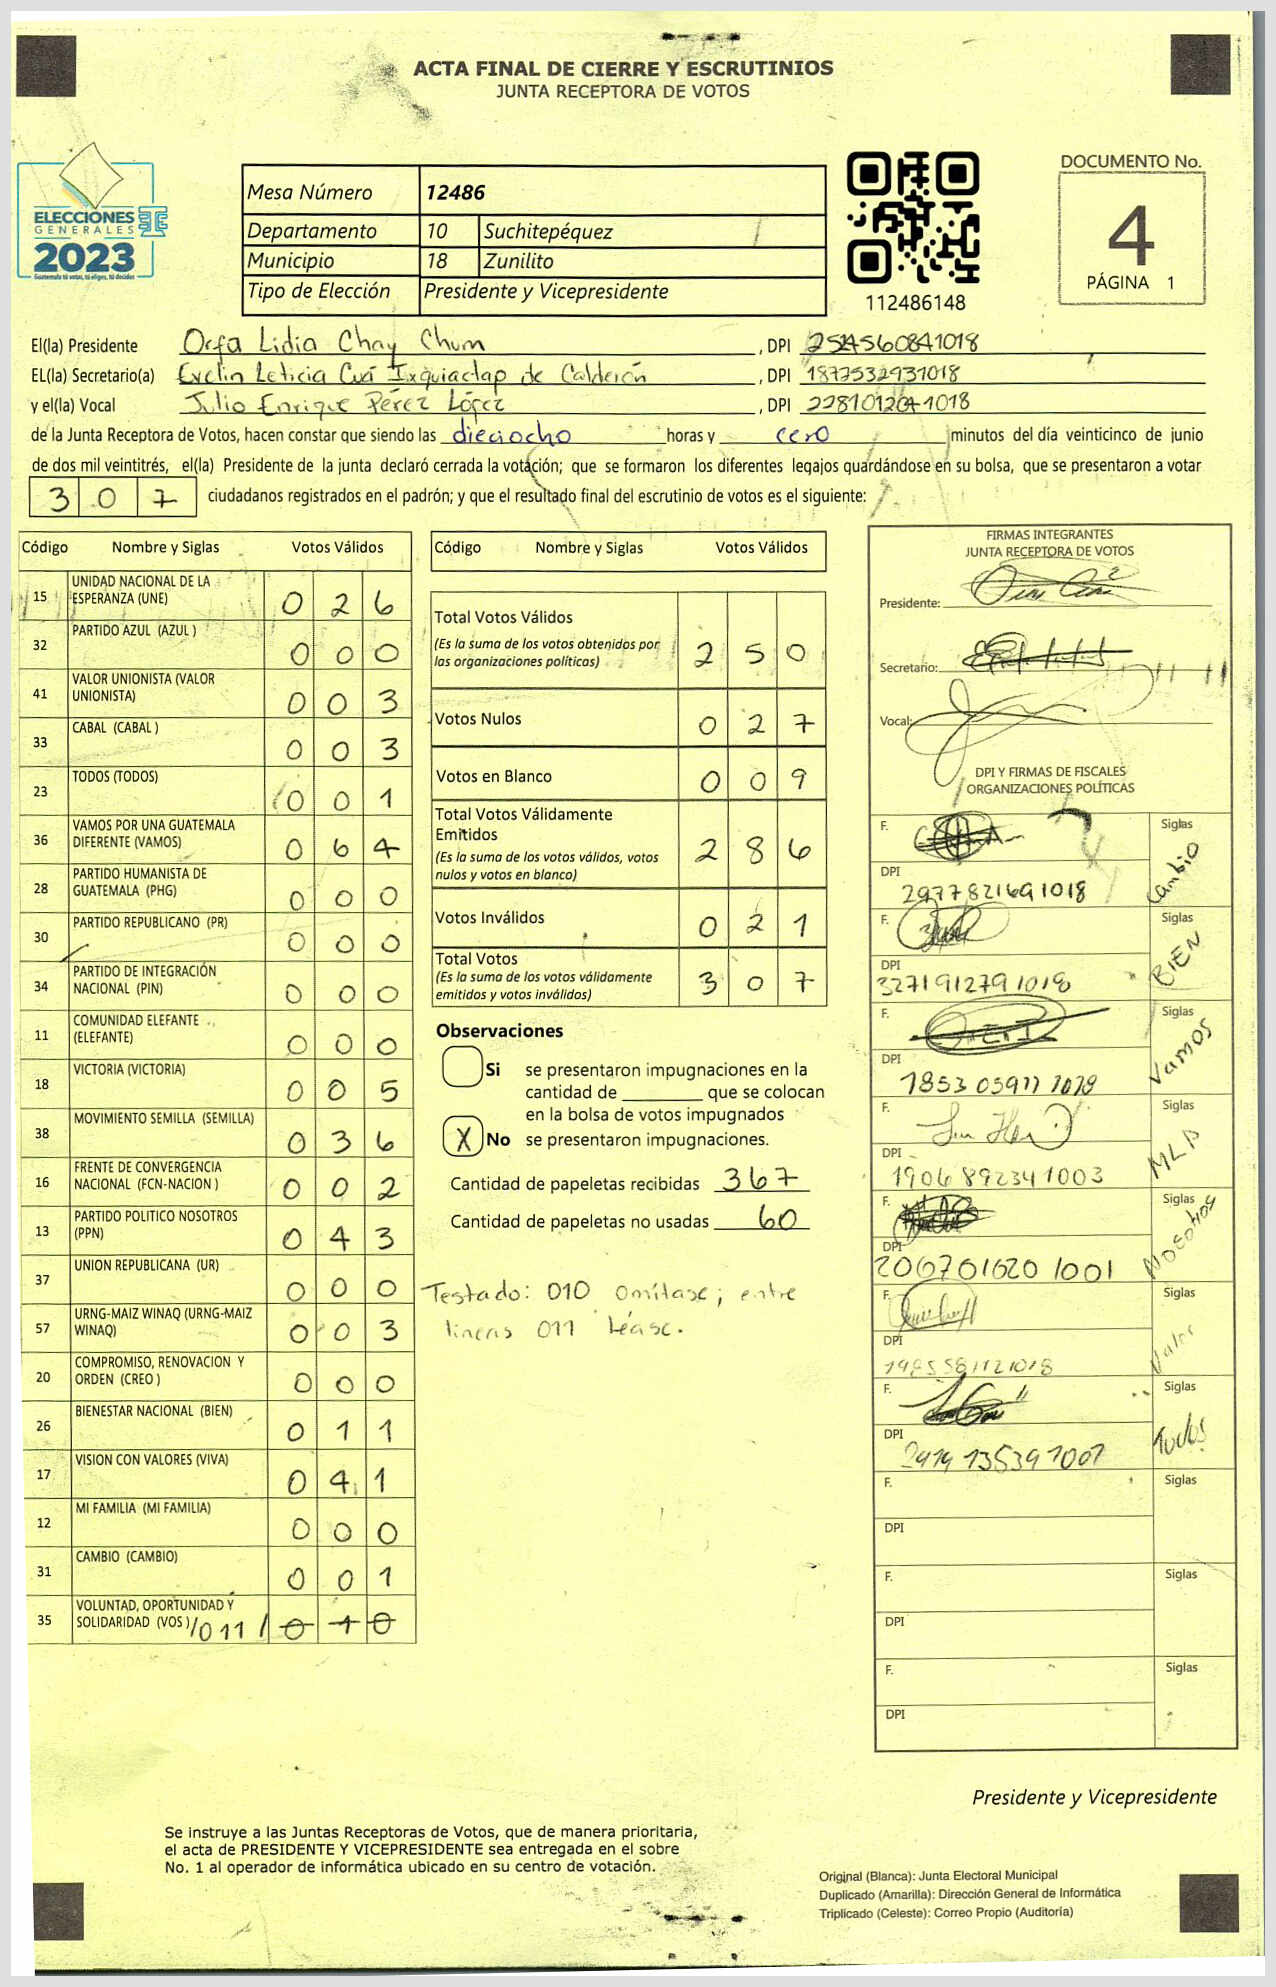 ACTA FINAL DE CIERRE Y ESCRUTINIOS
JUNTA RECEPTORA DE VOTOS
ELECCIONES
GENERALES
2023
Guatemala tú votas, tú eliges, tú decides
Mesa Número 12486
Departamento 10 Suchitepéquez
Municipio 18 Zunilito
Tipo de Elección Presidente y Vicepresidente
112486148
DOCUMENTO No.
4
PÁGINA 1
El(la) Presidente Orfa Lidia Chay Chum , DPI
EL(la) Secretario(a) Evelin Leticia Cuá Ixquiactap de Calderón , DPI 1877532931018
y el(la) Vocal Julio Enrique Pérez López , DPI
de la Junta Receptora de Votos, hacen constar que siendo las dieciocho horas y cero minutos del día veinticinco de junio
de dos mil veintitrés, el(la) Presidente de la junta declaró cerrada la votación; que se formaron los diferentes legajos guardándose en su bolsa, que se presentaron a votar
307 ciudadanos registrados en el padrón; y que el resultado final del escrutinio de votos es el siguiente:
Código Nombre y Siglas Votos Válidos
15 UNIDAD NACIONAL DE LA ESPERANZA (UNE) 026
32 PARTIDO AZUL (AZUL ) 000
41 VALOR UNIONISTA (VALOR UNIONISTA) 003
33 CABAL (CABAL ) 003
23 TODOS (TODOS) 001
36 VAMOS POR UNA GUATEMALA DIFERENTE (VAMOS) 064
28 PARTIDO HUMANISTA DE GUATEMALA (PHG) 000
30 PARTIDO REPUBLICANO (PR) 000
34 PARTIDO DE INTEGRACIÓN NACIONAL (PIN) 000
11 COMUNIDAD ELEFANTE (ELEFANTE) 000
18 VICTORIA (VICTORIA) 005
38 MOVIMIENTO SEMILLA (SEMILLA) 036
16 FRENTE DE CONVERGENCIA NACIONAL (FCN-NACION ) 002
13 PARTIDO POLITICO NOSOTROS (PPN) 043
37 UNION REPUBLICANA (UR) 000
57 URNG-MAIZ WINAQ (URNG-MAIZ WINAQ) 003
20 COMPROMISO, RENOVACION Y ORDEN (CREO ) 000
26 BIENESTAR NACIONAL (BIEN) 011
17 VISION CON VALORES (VIVA) 041
12 MI FAMILIA (MI FAMILIA) 000
31 CAMBIO (CAMBIO) 001
35 VOLUNTAD, OPORTUNIDAD Y SOLIDARIDAD (VOS ) /011/ 010
Código Nombre y Siglas Votos Válidos
Total Votos Válidos 250
(Es la suma de los votos obtenidos por
las organizaciones políticas)
Votos Nulos 027
Votos en Blanco 009
Total Votos Válidamente
Emitidos 286
(Es la suma de los votos válidos, votos
nulos y votos en blanco)
Votos Inválidos 021
Total Votos 307
(Es la suma de los votos válidamente
emitidos y votos inválidos)
Observaciones
Si se presentaron impugnaciones en la
cantidad de ________ que se colocan
en la bolsa de votos impugnados
X No se presentaron impugnaciones.
Cantidad de papeletas recibidas 367
Cantidad de papeletas no usadas 60
Testado: 010 omítase; entre
líneas 011 Léase.
FIRMAS INTEGRANTES
JUNTA RECEPTORA DE VOTOS
Presidente:
Secretario:
Vocal:
DPI Y FIRMAS DE FISCALES
ORGANIZACIONES POLÍTICAS
F. Siglas Cambio
DPI 2977821691018
F. Siglas BIEN
DPI 3271912791018
F. Siglas Vamos
DPI
F. Siglas MLP
DPI 1906892341003
F. Siglas Nosotros
DPI 2067016201001
F. Siglas Valor
DPI
F. Siglas Todos
DPI
F. Siglas
DPI
F. Siglas
DPI
F. Siglas
DPI
Presidente y Vicepresidente
Se instruye a las Juntas Receptoras de Votos, que de manera prioritaria,
el acta de PRESIDENTE Y VICEPRESIDENTE sea entregada en el sobre
No. 1 al operador de informática ubicado en su centro de votación.
Original (Blanca): Junta Electoral Municipal
Duplicado (Amarilla): Dirección General de Informática
Triplicado (Celeste): Correo Propio (Auditoría)